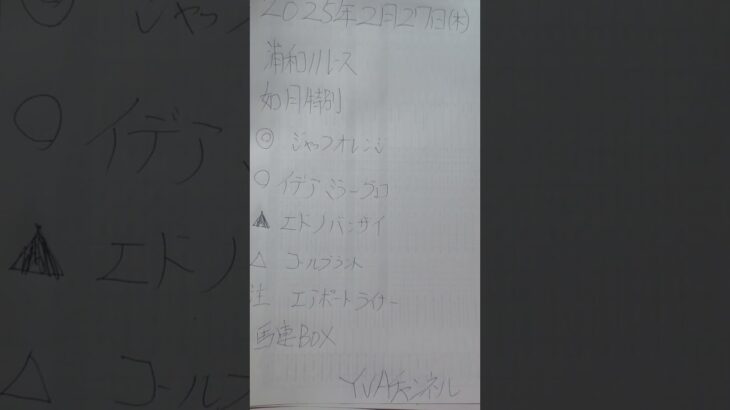 2025年2月27日(木)
浦和11レース
如月特別
◎ ジャックオレンジ
○ イデアミラーグロ
▲ エドノバンザイ
△ コールブラント
注 エアポートライナー
馬連BOX
YVAチャンネル